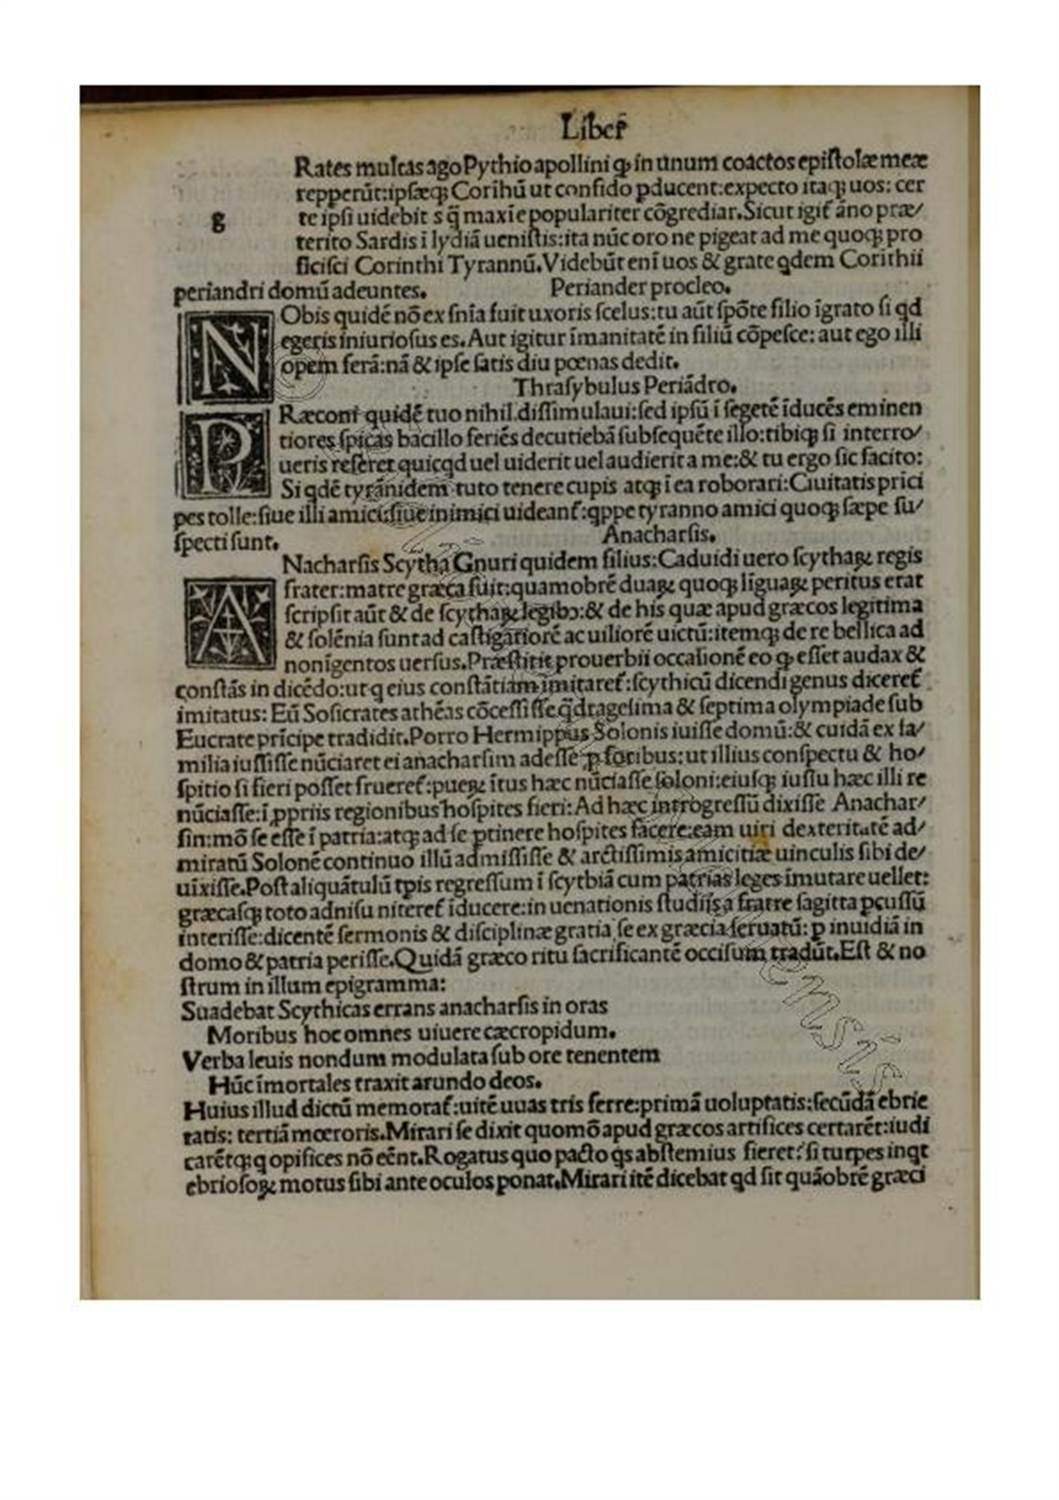 Liber
Rates multas ago Pythio apollini ꝙ in unum coactos epistolæ meæ
repperūt:ipsæqȝ Corīhū ut confido ꝓducent:expecto itaqȝ uos: cer
g
te ipsi uidebit s q̄ maxīe populariter cōgrediar.Sicut igit᷑ āno præ/
terito Sardis ī lydiā uenistis:ita nūc oro ne pigeat ad me quoqȝ pro
ficisci Corinthi Tyrannū.Videbūt enī uos & grate qdem Corīthii
periandri domū adeuntes. Periander procleo.
NObis quidē nō ex s̄nīa fuit uxoris scelus:tu aūt spōte filio īgrato si qd
egeris iniuriosus es.Aut igitur īmanitatē in filiū cōpesce: aut ego illi
opem ferā:nā & ipse satis diu pœnas dedit.
Thrasybulus Periādro.
PRæconi quidē tuo nihil dissimulaui:sed ipsū ī segetē īducēs eminen
tiores spicas bacillo feriēs decutiebā subsequēte illo:tibiqȝ si interro/
ueris referet quicqd uel uiderit uel audierit a me:& tu ergo sic facito:
Si qdē tyrānidem tuto tenere cupis atqȝ ī ea roborari:Ciuitatis prīci
pes tolle:siue illi amici:siue inimici uideant᷑:qppe tyranno amici quoqȝ sæpe su/
specti sunt. Anacharsis.
ANacharsis Scytha Gnuri quidem filius:Caduidi uero scythaꝝ regis
frater:matre græca fuit:quamobrē duaꝝ quoqȝ līguaꝝ peritus erat
scripsit aūt & de scythaꝝ legibꝫ:& de his quæ apud græcos legitima
& solēnia sunt ad castigatiorē ac uiliorē uictū:itemqȝ de re bellica ad
nonīgentos uersus.Præstitit prouerbii occasionē eo ꝙ esset audax &
constās in dicēdo:ut q eius constātiam īmitaret᷑:scythicū dicendi genus diceret᷑
imitatus: Eū Sosicrates athēas cōcessisse q̄dragesima & septima olympiade sub
Eucrate prīcipe tradidit.Porro Hermippus Solonis iuisse domū:& cuidā ex fa/
milia iussisse nūciaret ei anacharsim adesse ꝓ foribus:ut illius conspectu & ho/
spitio si fieri posset frueret᷑:pueꝝ ītus hæc nūciasse soloni:eiusqȝ iussu hæc illi re
nūciasse:ī ꝓpriis regionibus hospites fieri:Ad hæc introgressū dixisse Anachar/
sin:mō se esse ī patria:atqȝ ad se ꝑtinere hospites facere:eam uiri dexteritatē ad/
miratū Solonē continuo illū admisisse & arctissimis amicitiæ uinculis sibi de/
uīxisse.Post aliquātulū tꝑis regressum ī scythiā cum patrias leges īmutare uellet:
græcasqȝ toto adnisu niteret᷑ īducere:in uenationis studiis a fratre sagitta ꝑcussū
interisse:dicentē sermonis & disciplinæ gratia se ex græcia seruatū: ꝑ inuidiā in
domo & patria perisse.Quidā græco ritu sacrificantē occisum tradūt.Est & no
strum in illum epigramma:
Suadebat Scythicas errans anacharsis in oras
Moribus hoc omnes uiuere cæcropidum.
Verba leuis nondum modulata sub ore tenentem
Hūc īmortales traxit arundo deos.
Huius illud dictū memorat᷑:uitē uuas tris ferre:primā uoluptatis:secūdā ebrie
tatis: tertiā mœroris.Mirari se dixit quomō apud græcos artifices certarēt:iudi
carētqȝ q opifices nō eēnt.Rogatus quo pacto qs abstemius fieret?si turpes inqt
ebriosoꝝ motus sibi ante oculos ponat.Mirari itē dicebat qd sit quāobrē græci